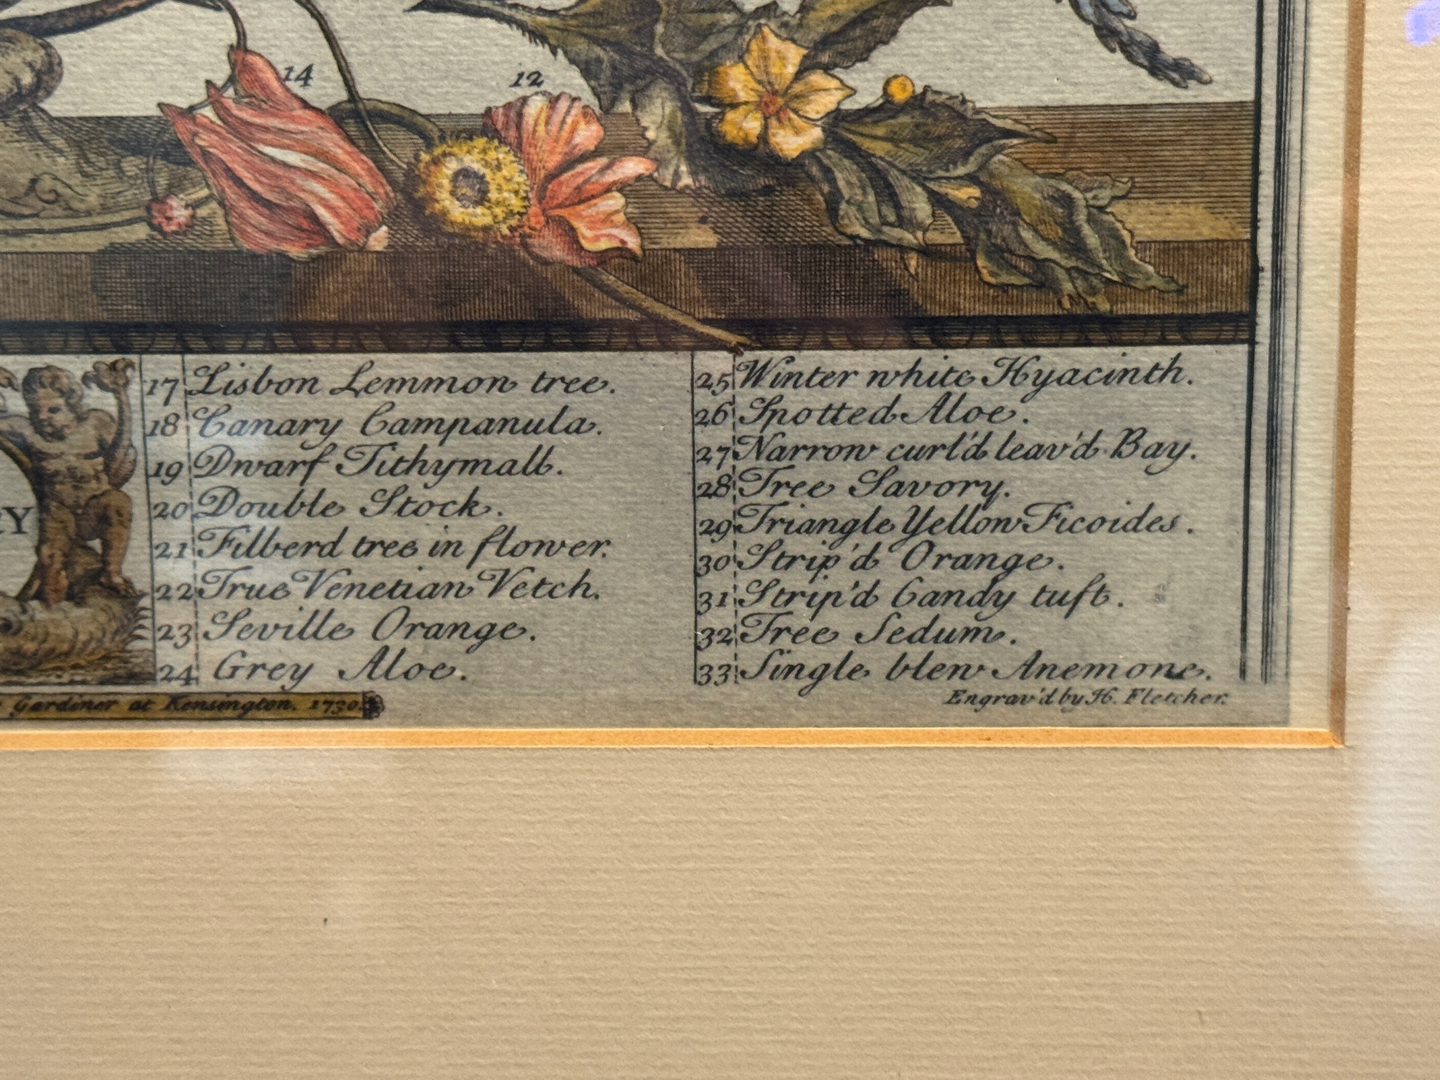 14
12
17 Lisbon Lemmon tree.
18 Canary Campanula.
19 Dwarf Tithymall.
20 Double Stock.
21 Filberd tree in flower.
22 True Venetian Vetch.
23 Seville Orange.
24 Grey Aloe.
25 Winter white Hyacinth.
26 Spotted Aloe.
27 Narrow curl'd leav'd Bay.
28 Tree Savory.
29 Triangle Yellow Ficoides.
30 Strip'd Orange.
31 Strip'd Candy tuft.
32 Tree Sedum.
33 Single blew Anemone.
RY
Gardiner at Kensington. 1730.
Engrav'd by H. Fletcher.